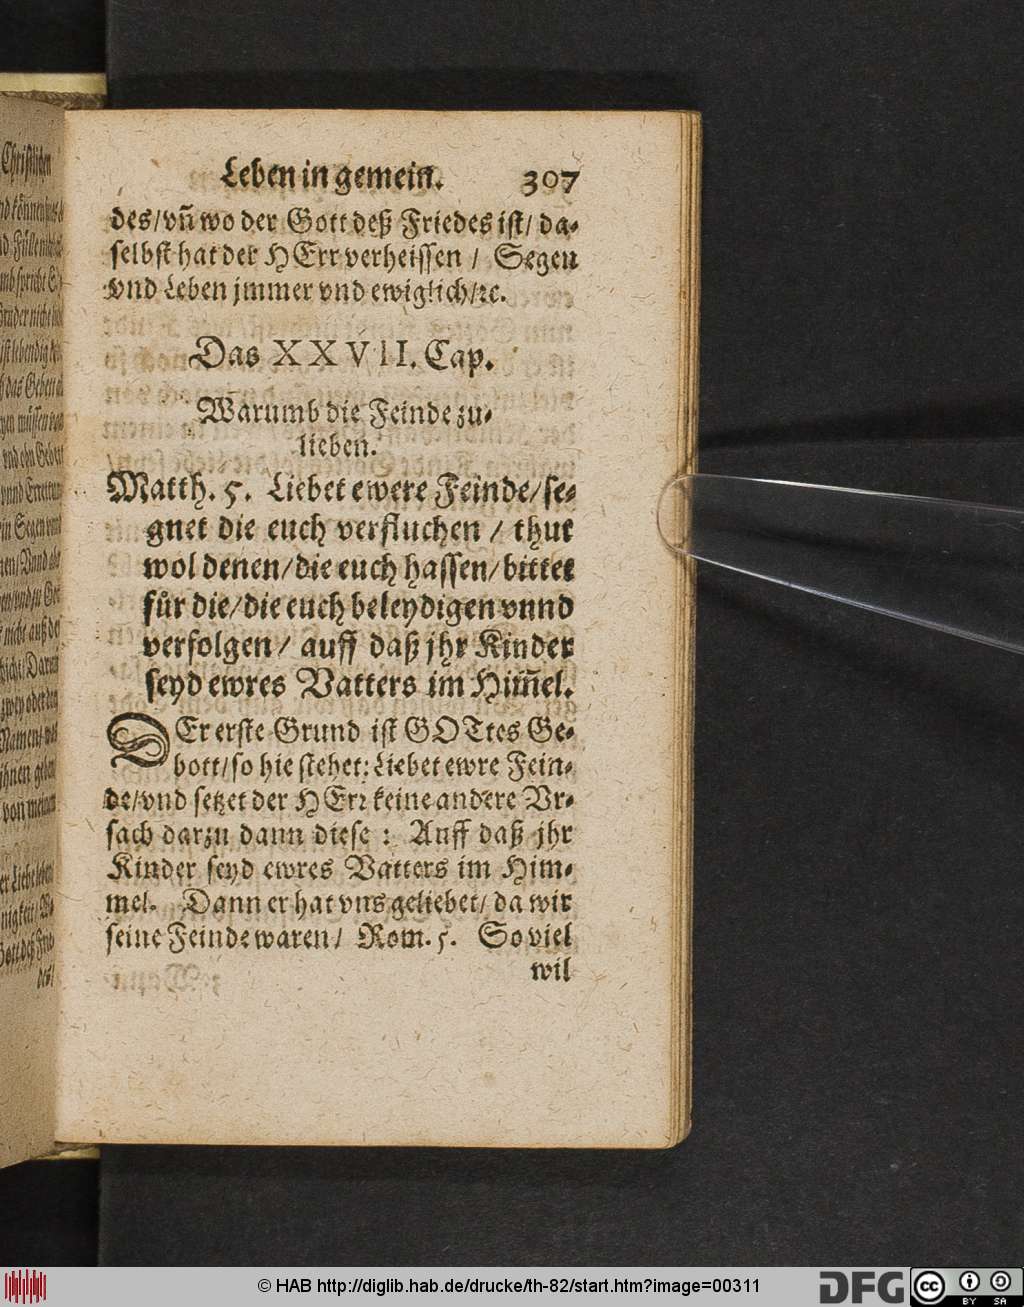 Leben in gemein. 307
des/ vn̄ wo der Gott deß Friedes ist/ da-
selbst hat der HErr verheissen / Segen
vnd Leben jmmer vnd ewiglich/ ꝛc.
Das XXVII. Cap.
Warumb die Feinde zu-
lieben.
Matth. 5. Liebet ewere Feinde/ se-
gnet die euch verfluchen / thut
wol denen/ die euch hassen/ bittet
fuͤr die/ die euch beleydigen vnnd
verfolgen/ auff daß jhr Kinder
seyd ewres Vatters im Him̄el.
DEr erste Grund ist GOTtes Ge-
bott/ so hie stehet: Liebet ewre Fein-
de/ vnd setzet der HErꝛ keine andere Vr-
sach darzu dann diese : Auff daß jhr
Kinder seyd ewres Vatters im Him-
mel. Dann er hat vns geliebet/ da wir
seine Feinde waren/ Rom. 5. So viel
wil
© HAB http://diglib.hab.de/drucke/th-82/start.htm?image=00311
DFG
cc BY SA